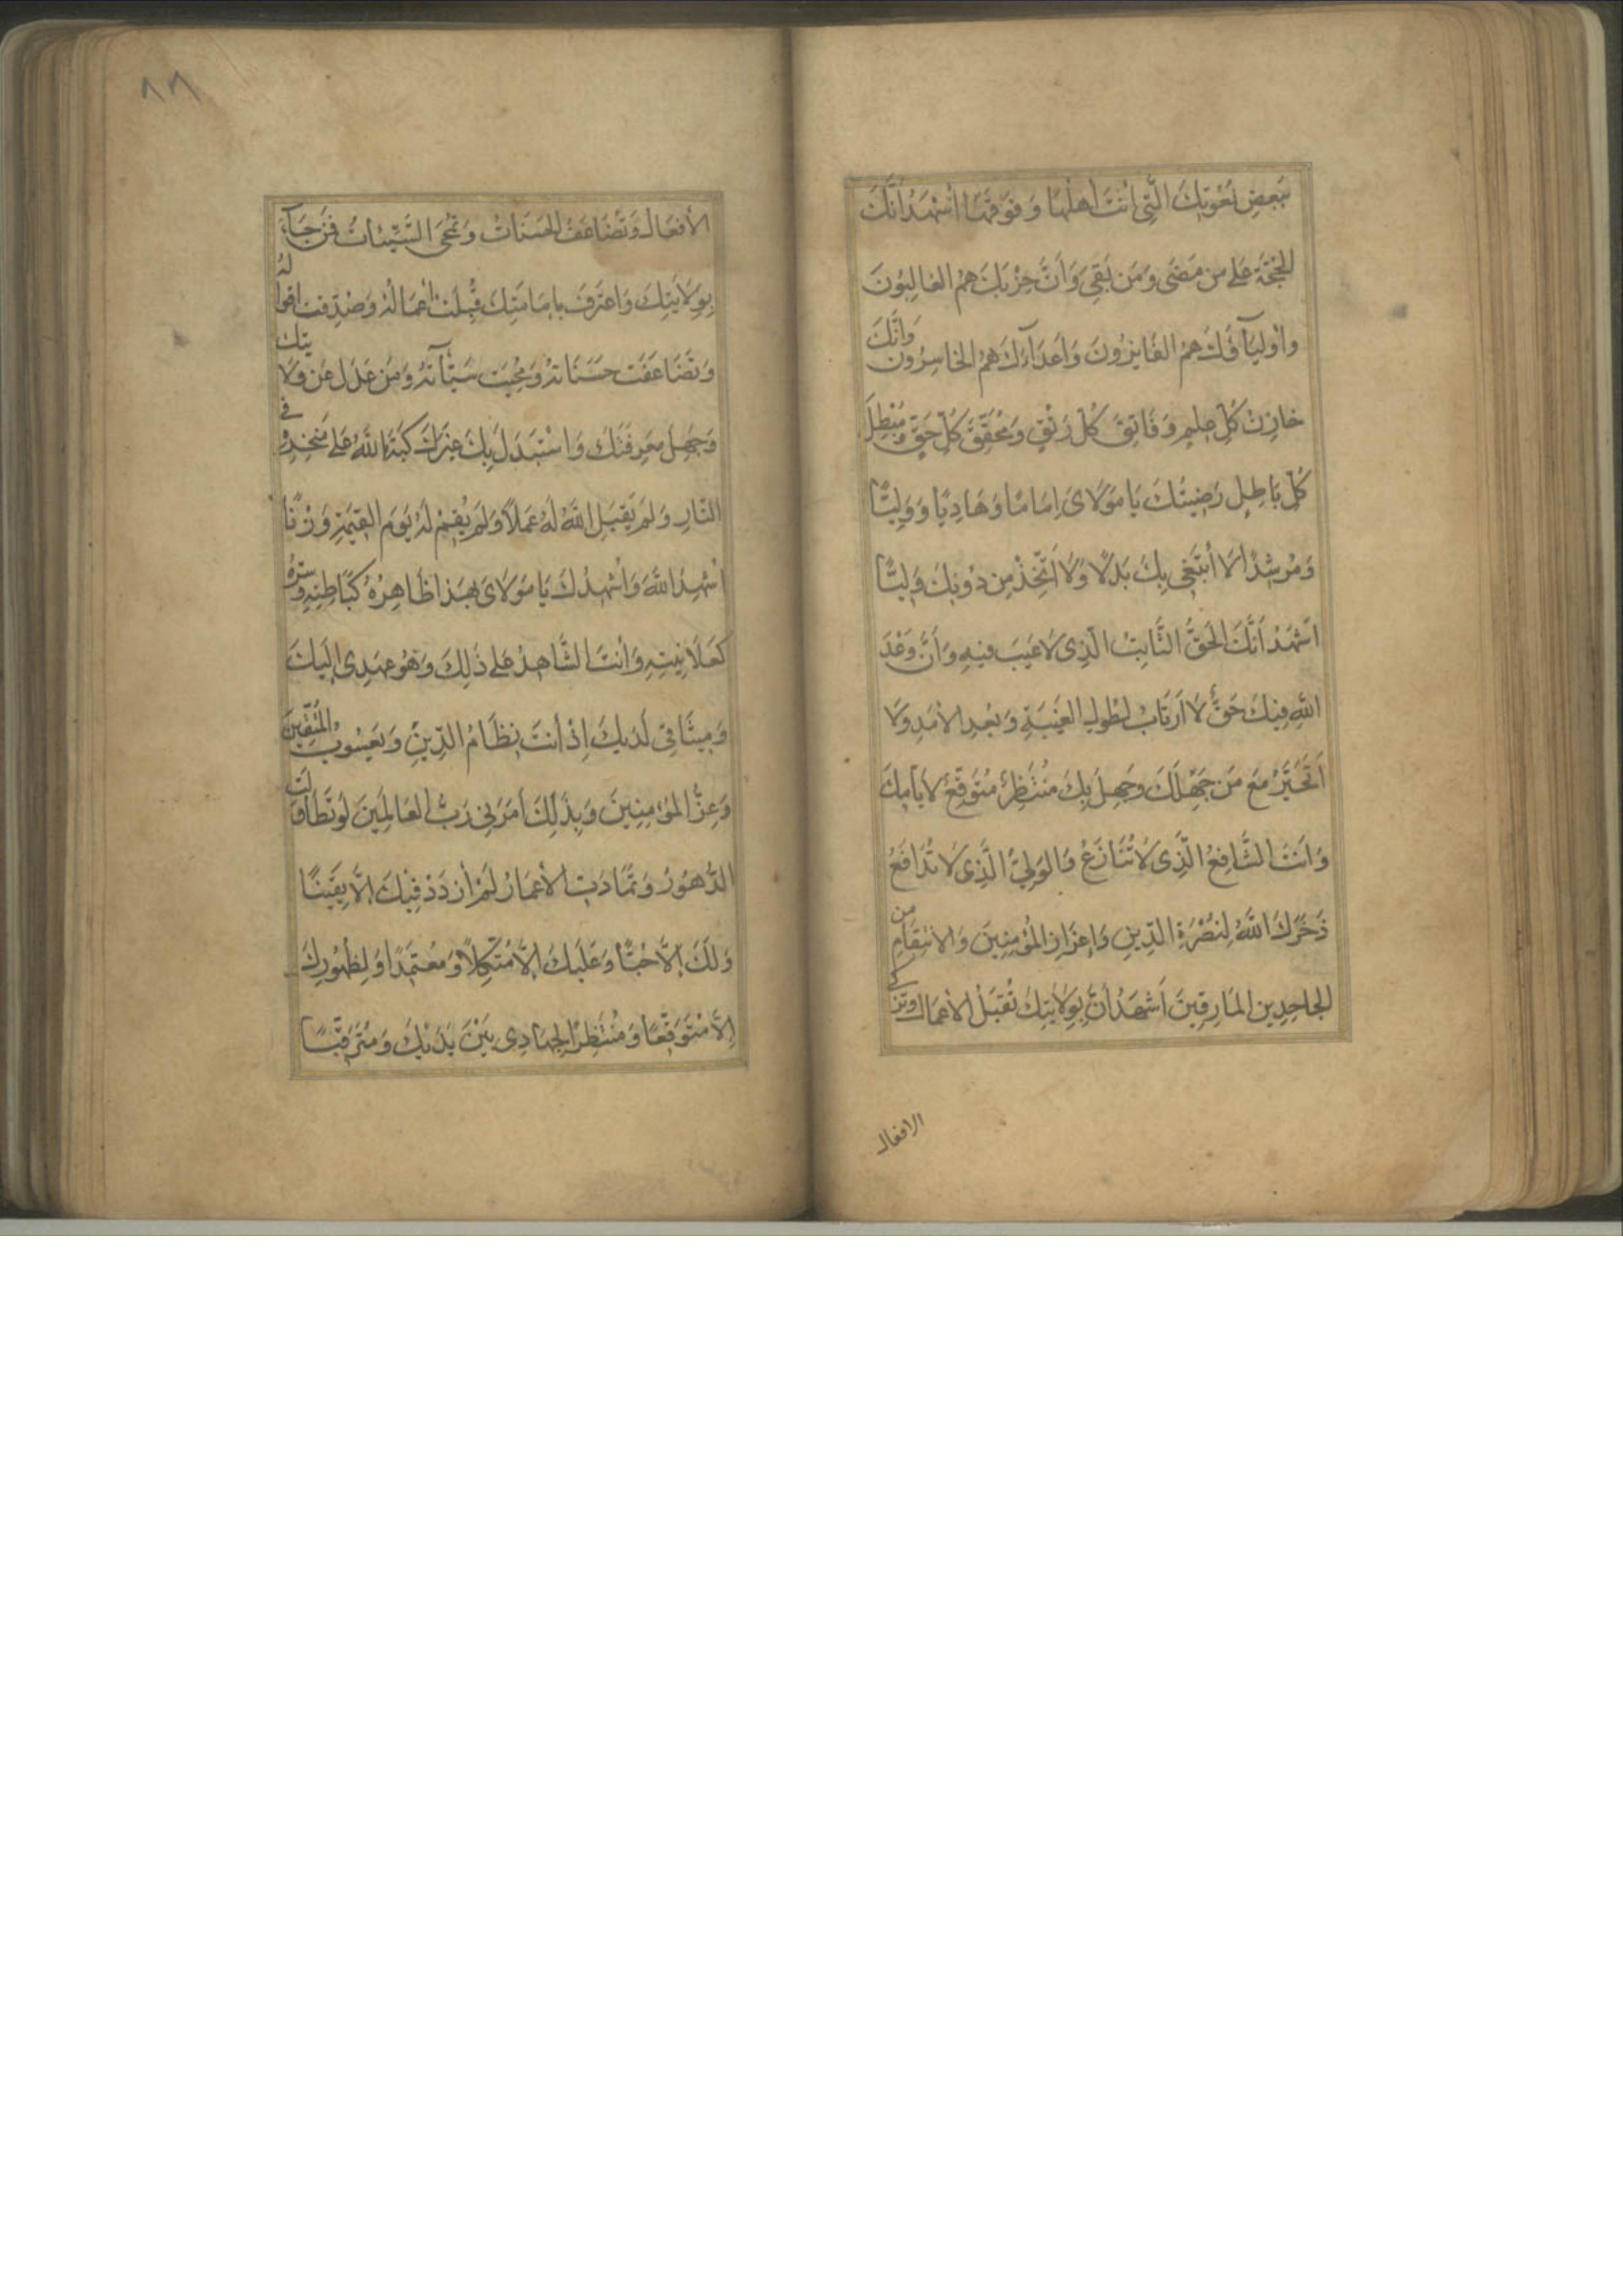 بَعضِ نُعُوتِكَ الَّتِي اَنتَ اَهلُهَا وَ فَوقَهَا اَشهَدُ اَنَّكَ
الحُجَّة عَلى من مَضَى وَمَن بَقِيَ وَاَنَّ حِزبَكَ هُمُ الغَالِبُونَ
وَاَوليَآؤُكَ هُمُ الفَايِزُونَ وَاَعدَآءَكَ هُمُ الخَاسِرُون وَاَنَّكَ
خازِنُ كُلِّ عِلمٍ وَفَاتِقُ كُلِّ رَتقٍ وَمُحَقِّقُ كُلِّ حَقٍّ وَمُبطِلُ
كُلِّ بَاطِلٍ رَضِيتُكَ يَا مَولَاىَ اِمَامًا وَهَادِيًا وَوَلِيًّا
وَمُرشِدًا لَا اَبتَغِي بِكَ بَدَلًا وَلَا اَتَّخِذُ مِن دُونِكَ وَلِيًّا
اَشهَدُ اَنَّكَ الحَقُّ الثَّابِتُ الَّذِى لَا عَيبَ فِيهِ وَاَنَّ وَعدَ
اللهِ فِيكَ حَقٌّ لَا اَرتَابُ لِطُولِ الغَيبَةِ وَبُعدِ الاَمَدِ وَلَا
اَتَحَيَّرُ مَعَ مَن جَهِلَكَ وَجَهِلَ بِكَ مُنتَظِرٌ مُتَوَقِّعٌ لاَيَّامِكَ
وَاَنتَ الشَّافِعُ الَّذِى لَا تُنَازَعُ وَالوَلِيُّ الَّذِى لَا تُدَافَعُ
ذَخَرَكَ اللهُ لِنُصرَةِ الدِّينِ وَاِعزَازِ المُؤمِنِينَ وَالاِنتِقَامِ مِن
الجَاحِدِينَ المَارِقِينَ اَشهَدُ اَنَّ بِوَلَايَتِكَ تُقبَلُ الاَعمَال وَتزكى
الافعال
٨٦
الاَفعَال وَتُضَاعَفُ الحَسَنَاتُ وَتُمحَى السَّيِّئَاتُ فَمَن جَآءَ
بِوِلَايَتِكَ وَاعتَرَفَ بِاِمَامَتِكَ قُبِلَت اَعمَالُهُ وَصُدِّقَت اقواله
وَتَضَاعَفَت حَسَنَاتُهُ وَمُحِيَت سَيِّآتُهُ وَمَن عَدَلَ عَن وَلَايتك
وَجَهِلَ مَعرِفَتَكَ وَاستَبدَلَ بِكَ غَيرَكَ كَبَّهُ اللهُ عَلى مَنخِرِهِ في
النَّارِ وَلَم يَقبَلِ اللهُ لَهُ عَمَلًا وَلَم يُقِم لَهُ يَومَ القِيمَةِ وَزنًا
اُشهِدُ اللهَ وَاُشهِدُكَ يَا مَولَاىَ بِهَذَا ظَاهِرُهُ كَبَاطِنِهِ وَسِرُّهُ
كَعَلَانِيَتِهِ وَاَنتَ الشَّاهِدُ عَلى ذَلِكَ وَهُوَ عَهدِى اِلَيكَ
وَمِيثَاقِي لَدَيكَ اِذ اَنتَ نِظَامُ الدِّينِ وَيَعسُوبُ المُتَّقِينَ
وَعِزُّ المُؤمِنِينَ وَبِذَلِكَ اَمَرَنِي رَبُّ العَالَمِينَ لَو تَطَاوَلَت
الدُّهُورُ وَتَمَادَتِ الاَعمَارُ لَم اَزدَد فِيكَ اِلَّا يَقِينًا
وَلَكَ اِلَّا حُبًّا وَعَلَيكَ اِلَّا مُتَّكِلًا وَمُعتَمِدًا وَلِظُهُورِكَ
اِلَّا مُتَوَقِّعًا وَمُنتَظِرًا لِجِهَادِى بَينَ يَدَيكَ وَمُتَرَقِّبًا